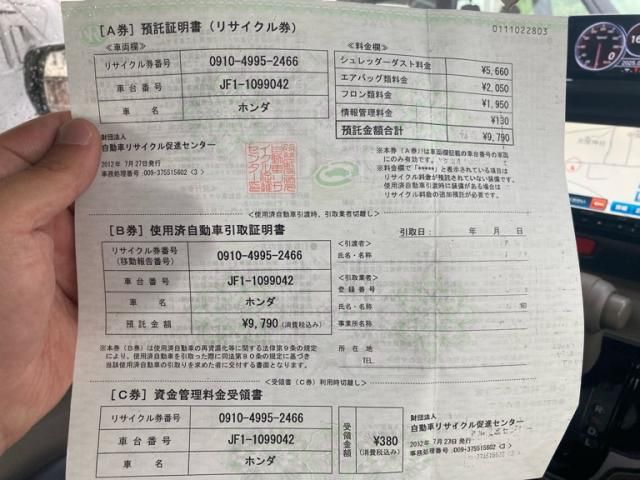 [A券] 預託証明書（リサイクル券）
0111022803
≪車両欄≫
リサイクル券番号 0910-4995-2466
車台番号 JF1-1099042
車名 ホンダ
≪料金欄≫
シュレッダーダスト料金 ¥5,660
エアバッグ類料金 ¥2,050
フロン類料金 ¥1,950
情報管理料金 ¥130
預託金額合計 ¥9,790
財団法人
自動車リサイクル促進センター
2012年 7月27日発行
事務処理番号 009-375515602 <3>
※本券（A券）は車両欄記載の車台番号の車両
にのみ有効です。
※料金欄で「*****」と表示されている項目は
リサイクル料金が預託されていない装備です。
使用済自動車引渡時に装備がある場合は
リサイクル料金の追加預託が必要です。
<使用済自動車引渡時、引取業者切離し>
[B券] 使用済自動車引取証明書
引取日： 年 月 日
リサイクル券番号
（移動報告番号）
0910-4995-2466
車台番号 JF1-1099042
車名 ホンダ
預託金額 ¥9,790（消費税込み）
<引渡者>
氏名・名称
<引取業者>
登録番号
氏名・名称
事業所名
所在地
TEL
※本券（B券）は使用済自動車の再資源化等に関する法律第9条の規定
により、使用済自動車を引取った際に同法第80条の規定に基づき
当該使用済自動車の引取りを求めた者に交付する書面となります。
<受領書（C券）利用時切離し>
[C券] 資金管理料金受領書
リサイクル券番号 0910-4995-2466
車台番号 JF1-1099042
車名 ホンダ
受領金額 ¥380（消費税込み）
財団法人
自動車リサイクル促進センター
2012年 7月27日発行
009-375515602 <3>